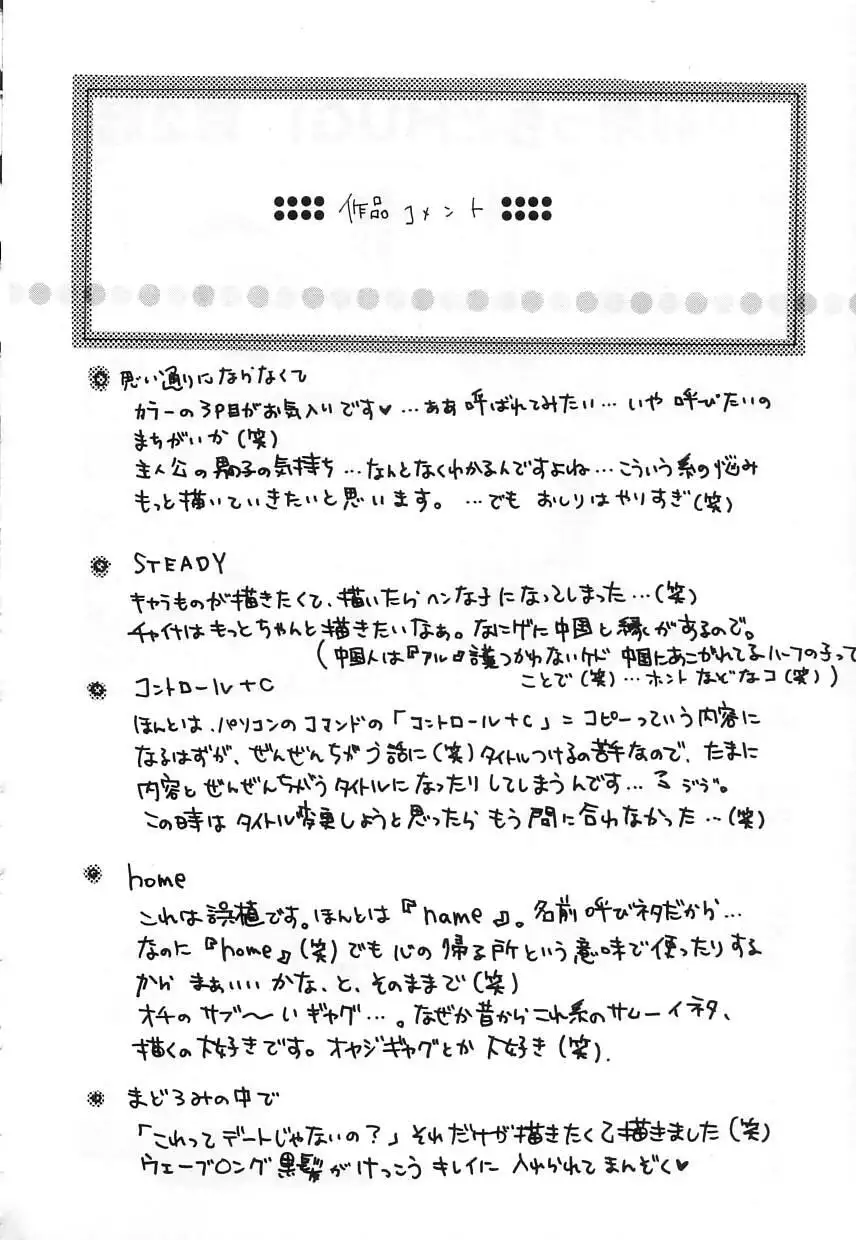 作品コメント
思い通りにならなくて
カラーの3P目がお気入りです♥…ああ 呼ばれてみたい…いや 呼びたいの
まちがいか(笑)
主人公の男の子の気持ち…なんとなくわかるんですよね…こういう系の悩み
もっと描いていきたいと思います。…でも おしりはやりすぎ(笑)
STEADY
キャラものが描きたくて、描いたらヘンな子になってしまった…(笑)
チャイナはもっとちゃんと描きたいなぁ。なにげに中国と縁があるので。
(中国人は『アル』語つかわないケド 中国にあこがれてるハーフの子って
ことで(笑)…ホントなどなコ(笑))
コントロール+C
ほんとは、パソコンのコマンドの「コントロール+C」=コピーっていう内容に
なるはずが、ぜんぜんちがう話に(笑)タイトルつけるの苦手なので、たまに
内容とぜんぜんちがうタイトルになったりしてしまうんです…
この時はタイトル変更しようと思ったらもう間に合わなかった…(笑)
home
これは誤植です。ほんとは『name』。名前呼びネタだから…
なのに『home』(笑)でも心の帰る所という意味で使ったりする
から まぁいいかな、と、そのままで(笑)
オチのサブ〜いギャグ…。なぜか昔からこれ系のサムーイネタ、
描くの大好きです。オヤジギャグとか大好き(笑).
まどろみの中で
「これってデートじゃないの?」それだけが描きたくて描きました(笑)
ウェーブロング黒髪がけっこうキレイに入れられてまんぞく♥